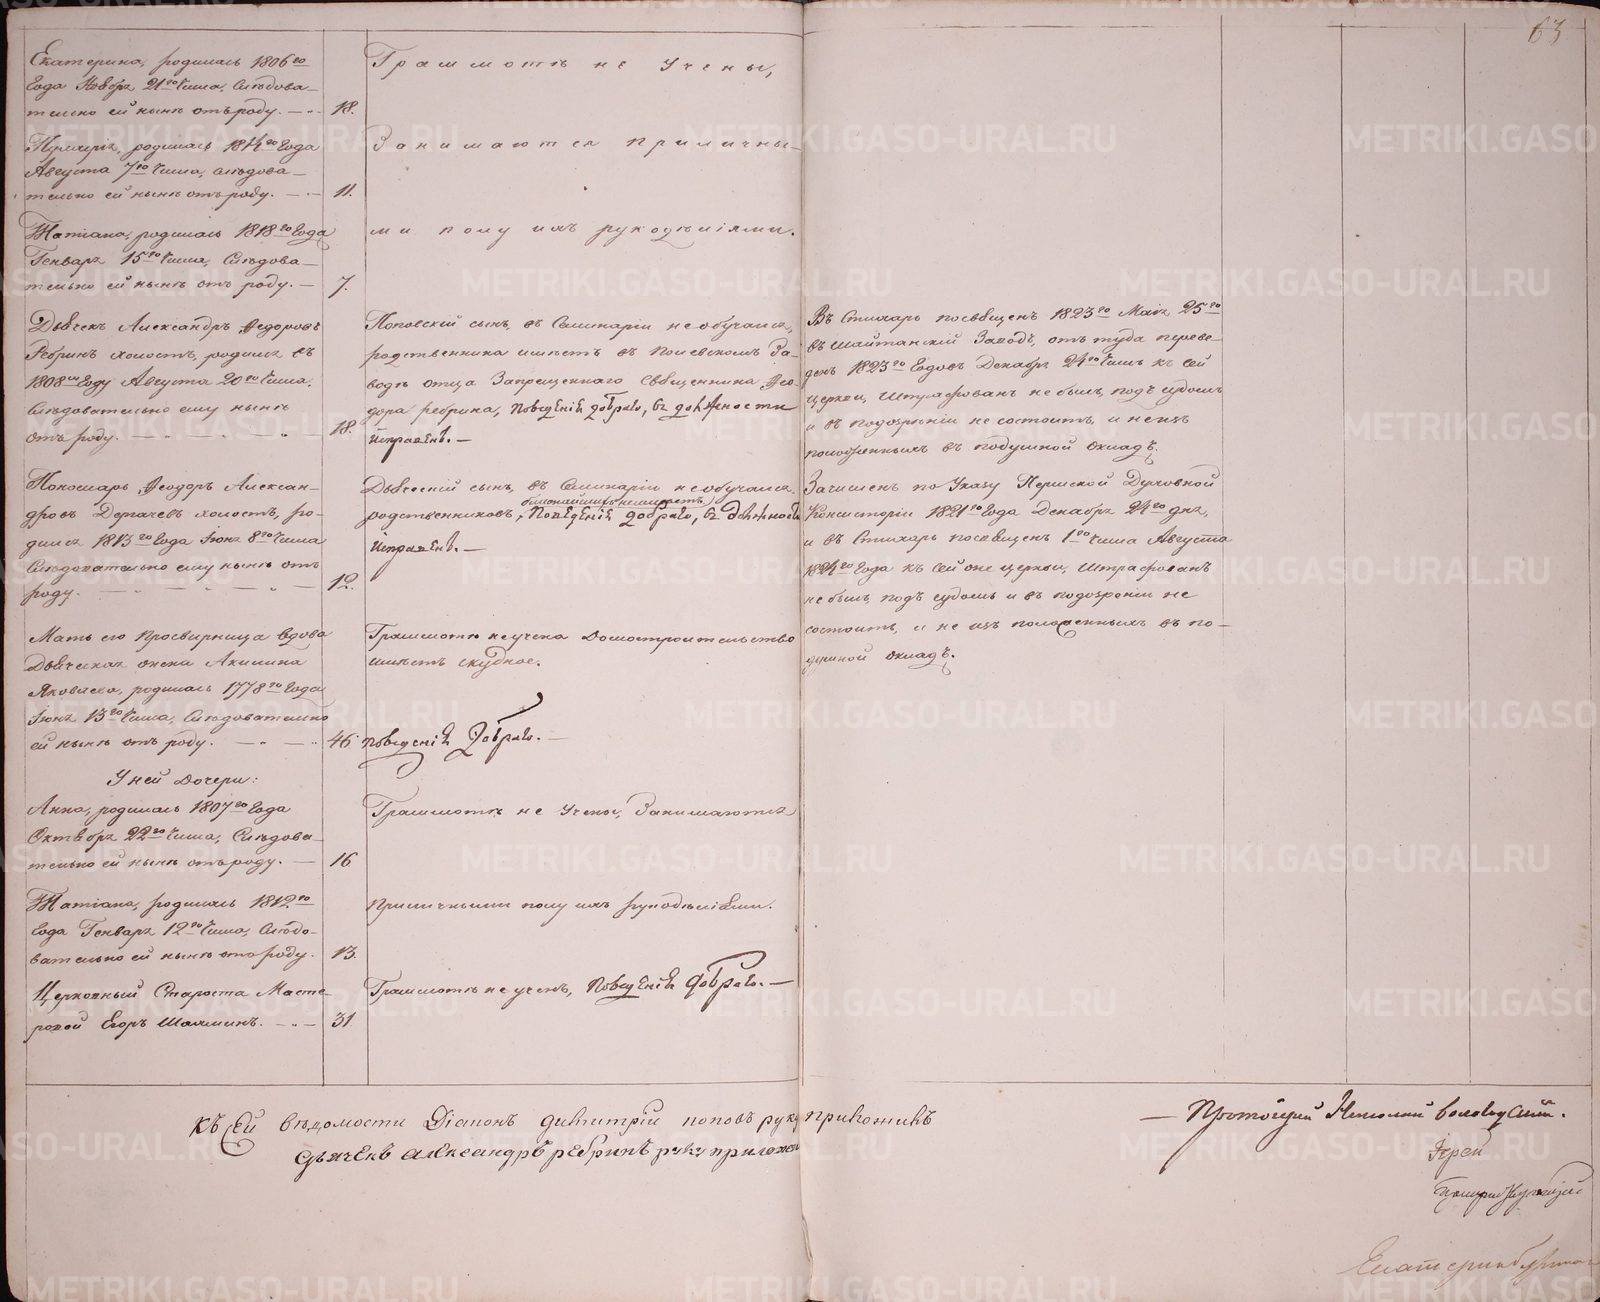 63
Екатерина, родилась 1806го
Года Ноября 21го Числа, Слѣдова-
тельно ей нынѣ отъ роду. — 18.
Грамматѣ не Учены,
родилась 1814го Года
Августа 7го Числа, слѣдова-
тельно ей нынѣ отъ роду. — 11.
Занимаются приличны-
Татіана, родилась 1818го Года
Генваря 15го Числа, Слѣдова-
тельно ей нынѣ отъ роду. — 7.
ми полу ихъ рукодѣліями.
Дьячекъ Александръ Ѳедоровъ
Ребринъ холостъ, родился въ
1808мъ Году Августа 20го Числа,
Слѣдовательно ему нынѣ
отъ роду. — 18.
Поповскій сынъ, въ Семинаріи не обучался,
родственника имѣетъ въ Полевскомъ За-
водѣ отца Запрещеннаго Священника Ѳео-
дора ребрина, поведенія добраго, въ должности
исправенъ. —
Въ Стихарь посвященъ 1823го Маія 25го
въ Шайтанскій Заводъ, оттуда переве-
денъ 1823го Годовъ Декабря 24го Числъ къ сей
церкви, Штрафованъ не былъ, подъ судомъ
и въ подозрѣніи не состоитъ, и не изъ
положенныхъ въ подушной окладъ.
Пономарь Ѳеодоръ Алексан-
дровъ Дергачевъ холостъ, ро-
дился 1813го Года Іюня 8го Числа
Слѣдовательно ему нынѣ отъ
роду. — 12.
Дьяческій сынъ, въ Семинаріи не обучался
ближайшихъ неимѣетъ,
родственниковъ, поведенія добраго, въ должности
исправенъ. —
Зачисленъ по Указу Пермской Духовной
Консисторіи 1821го Года Декабря 24го дня,
и въ Стихарь посвященъ 1го Числа Августа
1824го Года къ сей оне церкви, Штрафованъ
не былъ, подъ судомъ и въ подозрѣніи не
состоитъ, и не изъ положенныхъ въ по-
душной окладъ.
Мать его Просвирница Вдова
Дьяческая жена Акилина
Яковлева, родилась 1778го Года
Іюня 13го Числа, Слѣдовательно
ей нынѣ отъ роду. — 46
Грамматѣ неучена Домостроительство
имѣетъ скудное.
поведенія Добраго. —
У ней Дочери:
Анна, родилась 1807го Года
Октября 22го Числа, Слѣдова-
тельно ей нынѣ отъ роду. — 16
Грамматѣ не Учены, Занимаются
Татіана, родилась 1812го
Года Генваря 12го Числа, Слѣдо-
вательно ей нынѣ отъ роду. 13.
приличными полу ихъ рукодѣліями.
Церковный Староста Масте-
ровой Егоръ Шалминъ. — 31
Грамматѣ не ученъ, поведенія добраго. —
Къ сей вѣдомости Діаконъ димитрій поповъ руку приложилъ
Дьячекъ александръ ребринъ руку приложилъ
— Протоіерей Николай
Іерей
METRIKI.GASO-URAL.RU